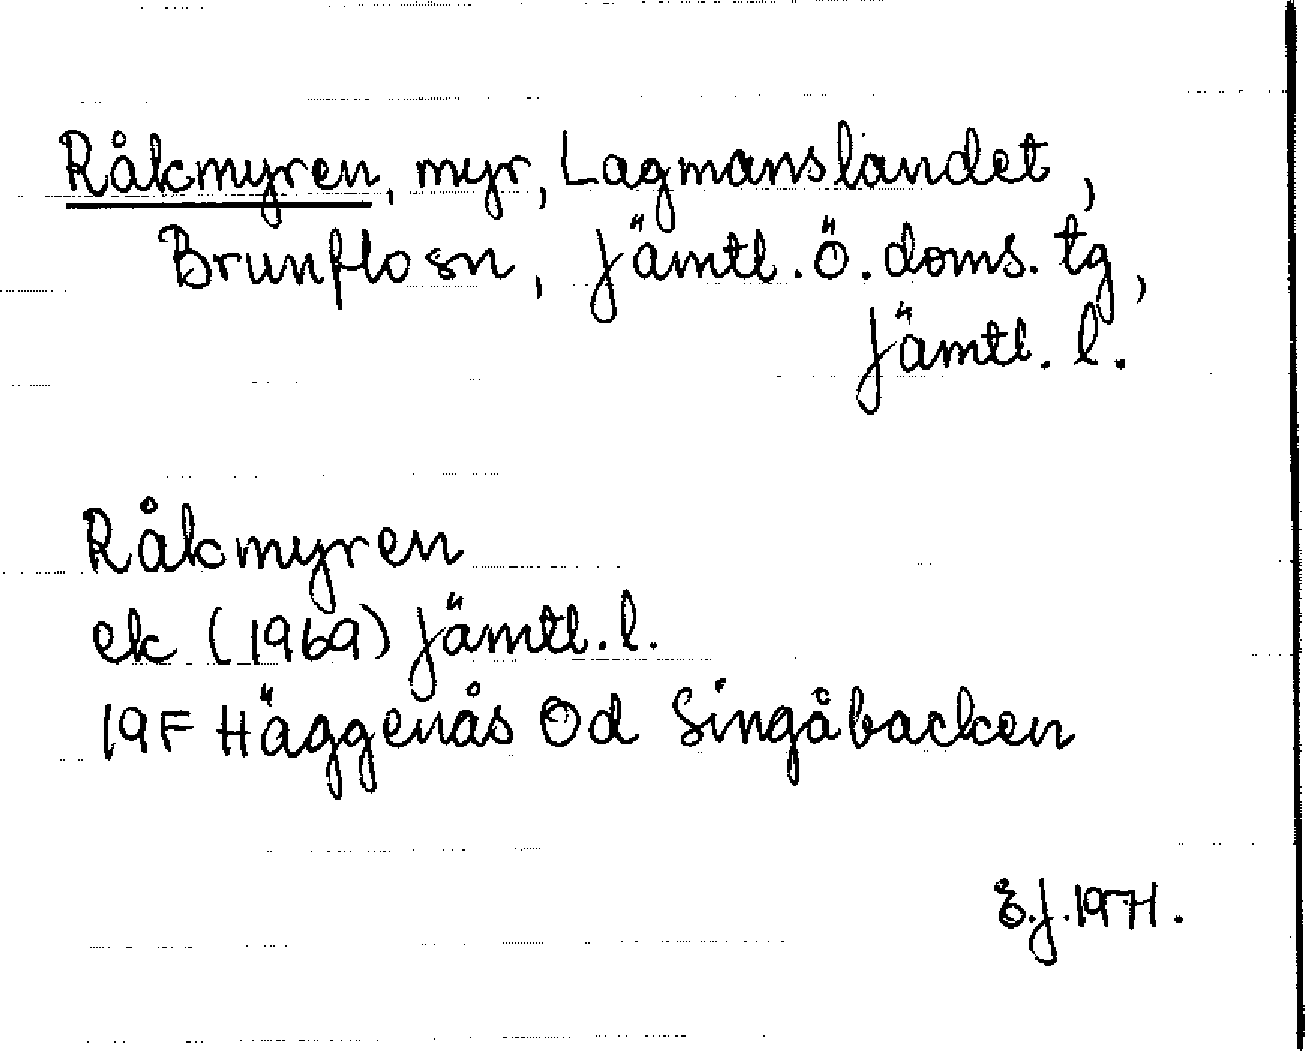 Råkmyren, myr, Lagmanslandet,
Brunflo sn, Jämtl. Ö. doms. tg,
Jämtl. l.
Råkmyren
ek (1969) Jämtl. l.
19F Häggenås Od Singåbacken
E.J. 1971.